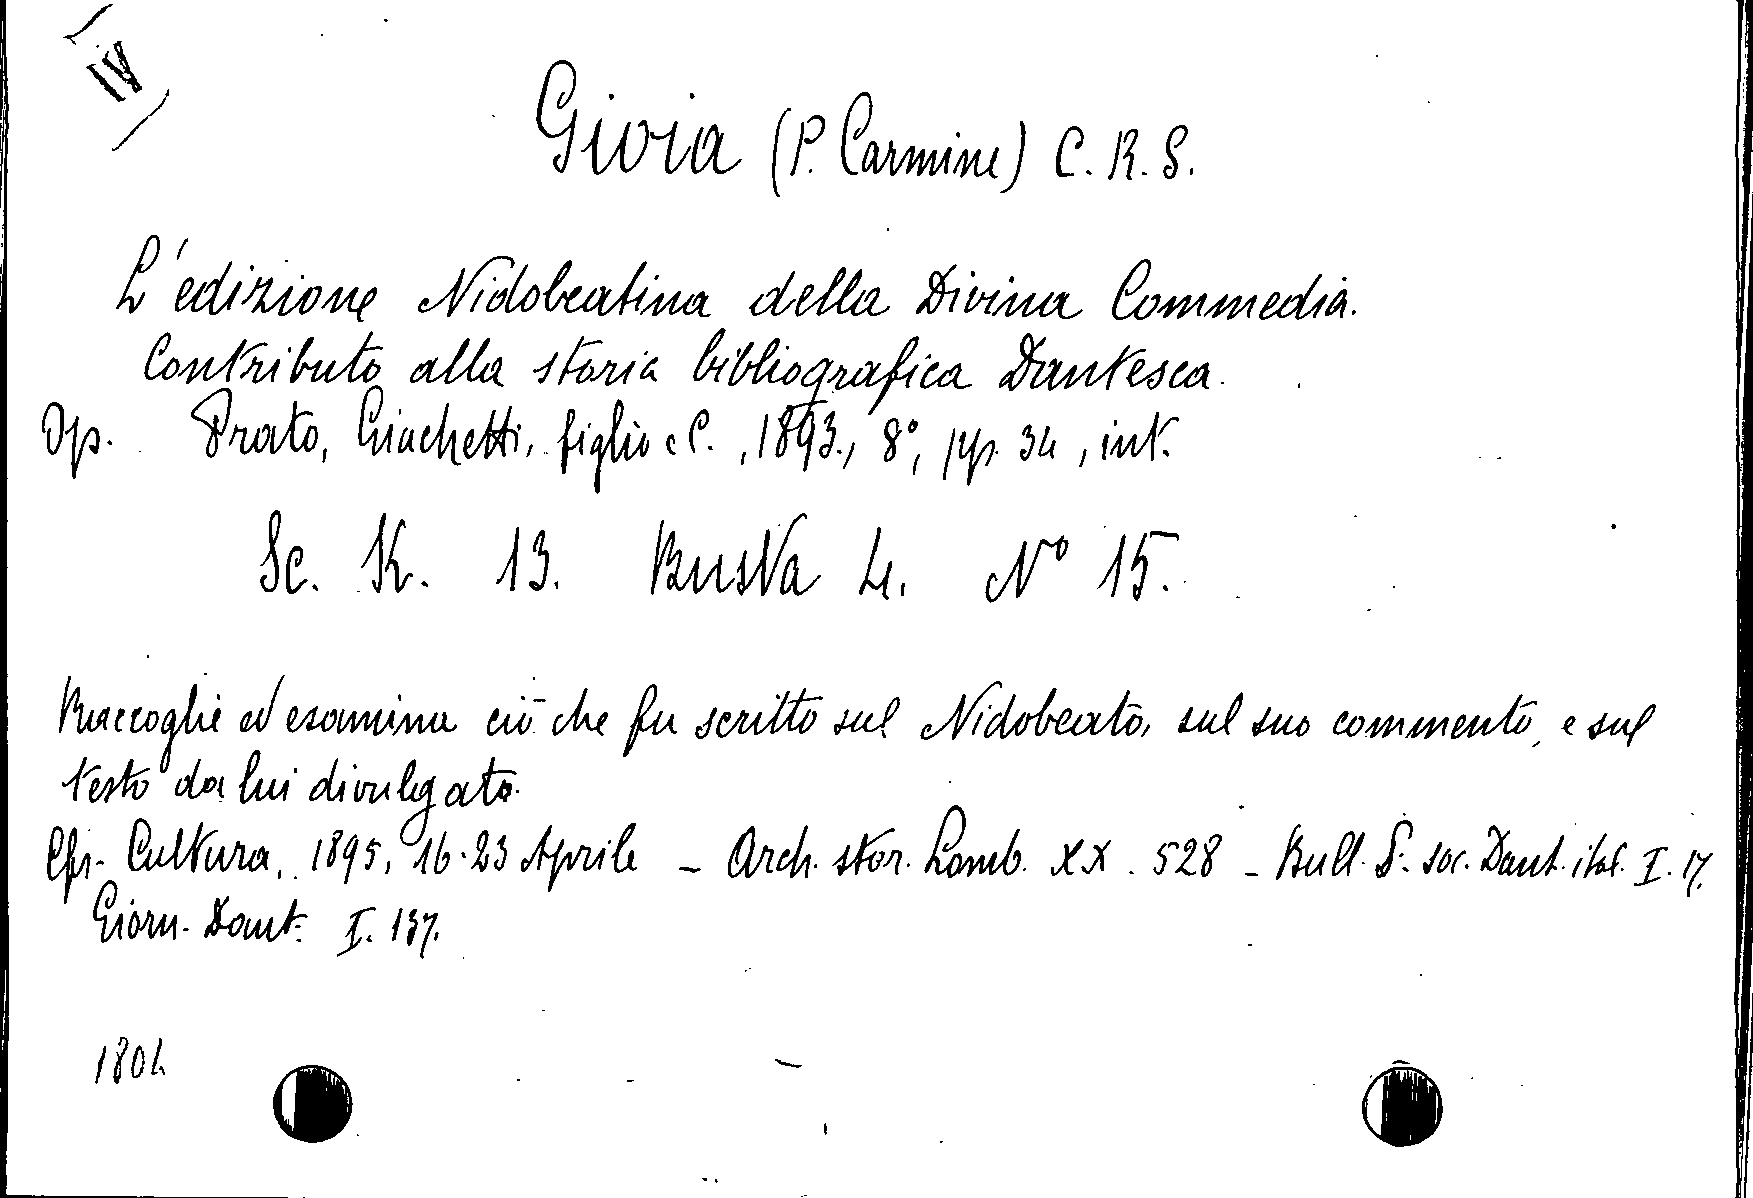 IV
Gioia (P. Carmine) C. R. S.
L'edizione Nidobeatina della Divina Commedia.
Contributo alla storia bibliografica Dantesca.
Op. Prato, Giachetti, figlio e C., 1893., 8°, pp. 34, int.
Sc. K. 13. Busta 4. N° 15.
Raccoglie ed esamina ciò che fu scritto sul Nidobeato, sul suo commento, e sul
testo da lui divulgato.
Cfr. Cultura, 1895, 16-23 Aprile - Arch. stor. Lomb. XX. 528 - Bull. S. soc. Dant. ital. I. 17.
Giorn. Dant. I. 137.
1804